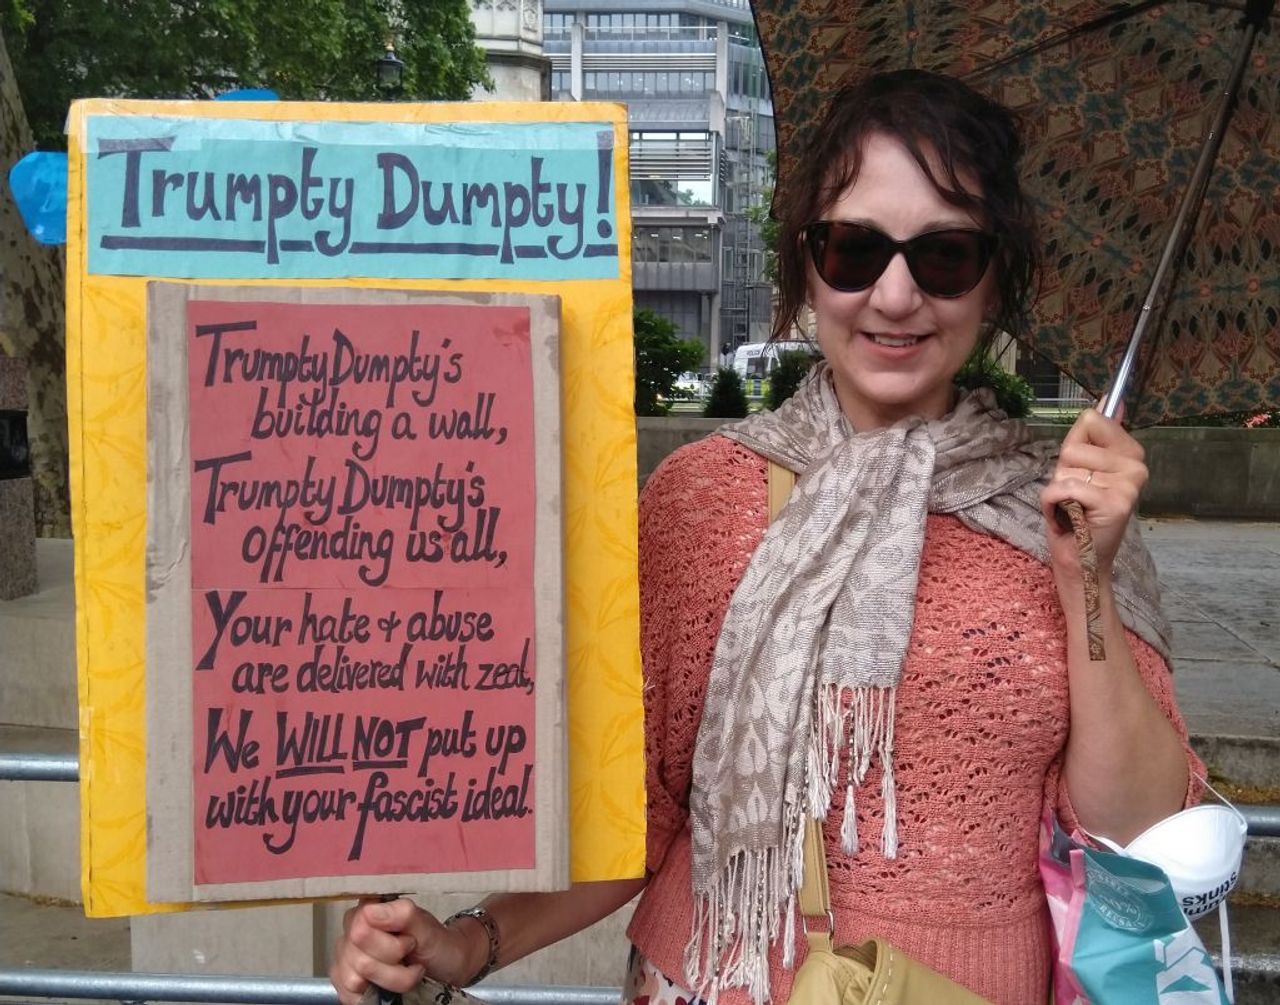 Trumpty Dumpty!
Trumpty Dumpty's
building a wall,
Trumpty Dumpty's
offending us all,
Your hate & abuse
are delivered with zeal,
We WILL NOT put up
with your fascist ideal.
stinks
POLICE